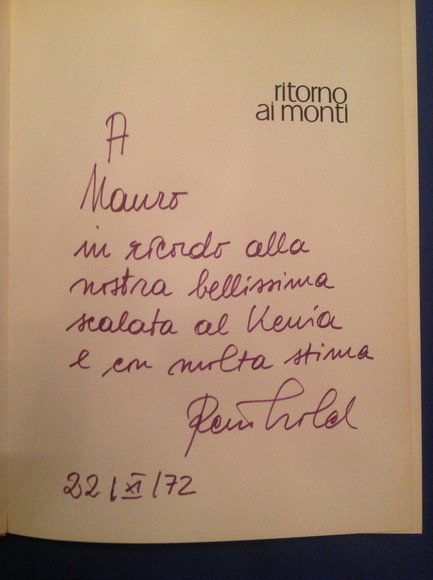 ritorno
ai monti
A
Mauro
in ricordo alla
nostra bellissima
scalata al Kenia
e con molta stima
Reinhold
22/XI/72